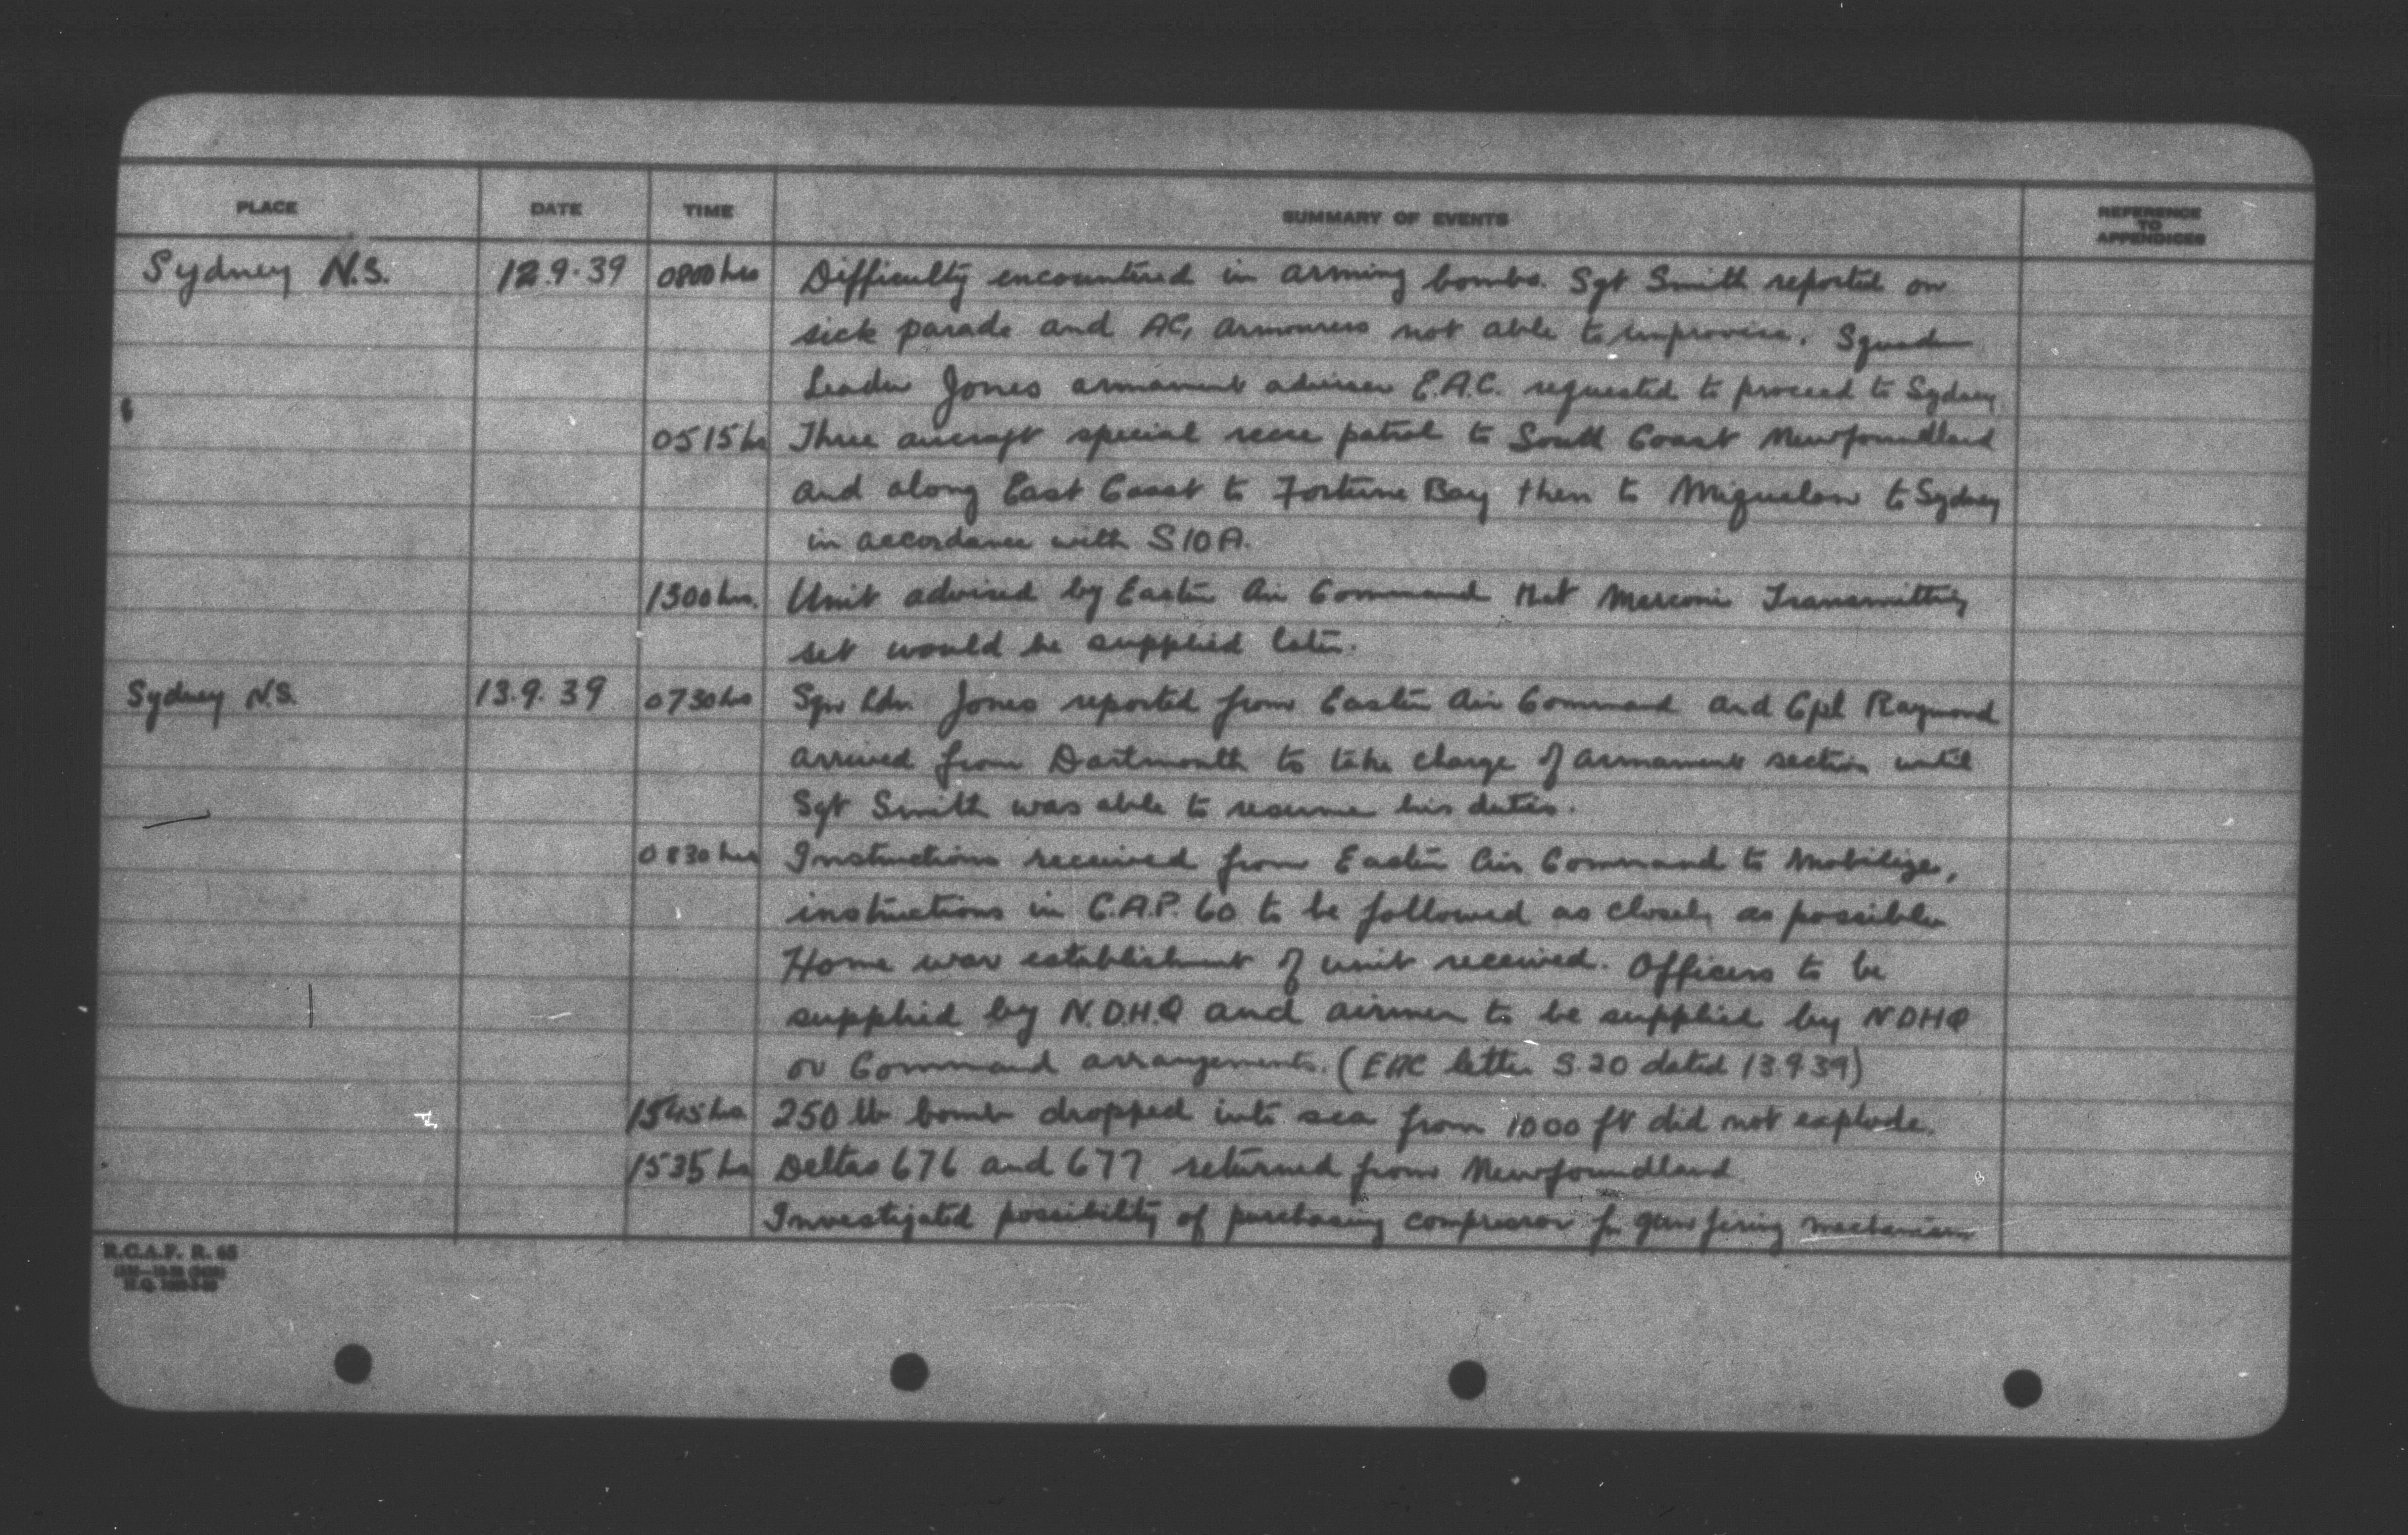 PLACE DATE TIME SUMMARY OF EVENTS REFERENCE TO APPENDICES
Sydney N.S. 12.9.39 0800 hrs Difficulty encountered in arming bombs. Sgt Smith reported on
sick parade and AC1 armourers not able to improvise. Squadron
Leader Jones armament adviser E.A.C. requested to proceed to Sydney
0515 hrs Three aircraft special recce patrol to South Coast Newfoundland
and along East Coast to Fortune Bay then to Miquelon to Sydney
in accordance with S10A.
1300 hrs. Unit advised by Eastern Air Command that Marconi Transmitting
set would be supplied later.
Sydney N.S. 13.9.39 0730 hrs Sqn Ldr. Jones reported from Eastern Air Command and Cpl Raymond
arrived from Dartmouth to take charge of armament section until
Sgt Smith was able to resume his duties.
0830 hrs Instructions received from Eastern Air Command to Mobilize,
instructions in C.A.P. 60 to be followed as closely as possible
Home war establishment of unit received. Officers to be
supplied by N.D.H.Q and airmen to be supplied by NDHQ
or Command arrangements. (EAC letter S.20 dated 13.9.39)
1545 hrs 250 lb bomb dropped into sea from 1000 ft did not explode.
1535 hrs Deltas 676 and 677 returned from Newfoundland
Investigated possibility of purchasing compressor for gun firing mechanism
R.C.A.F. R. 65